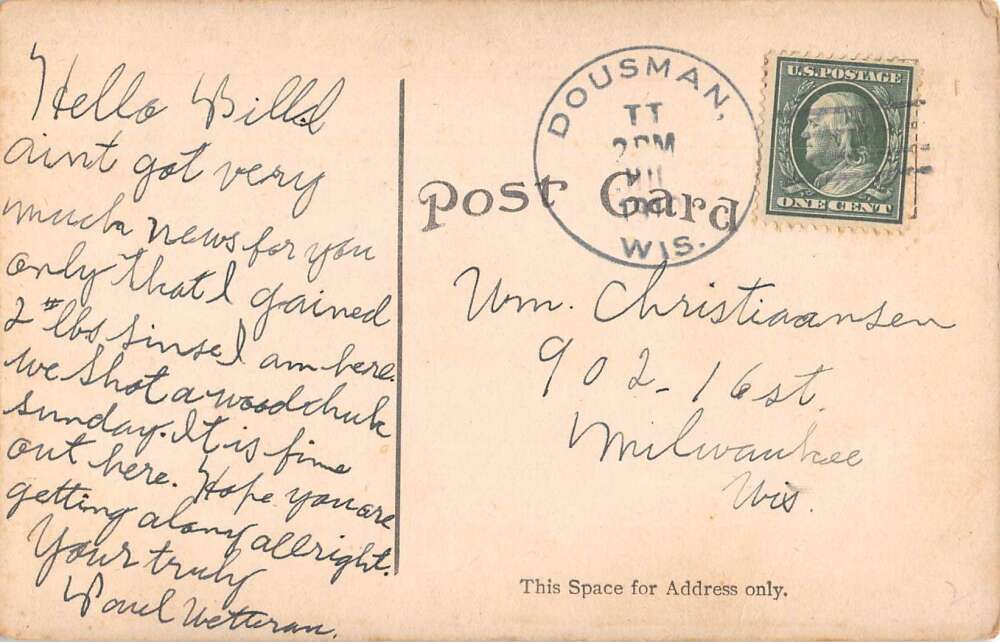 Hello Billd
aint got very
much news for you
only that I gained
2# lbs sinse I am here.
we shot a woodchuk
sunday. It is fine
out here. Hope you are
getting along allright.
Your truly
Paul
Post Card
DOUSMAN,
2 PM
WIS.
U.S. POSTAGE
ONE CENT
Wm. Christiaansen
902 - 16 st.
Milwaukee
Wis.
This Space for Address only.